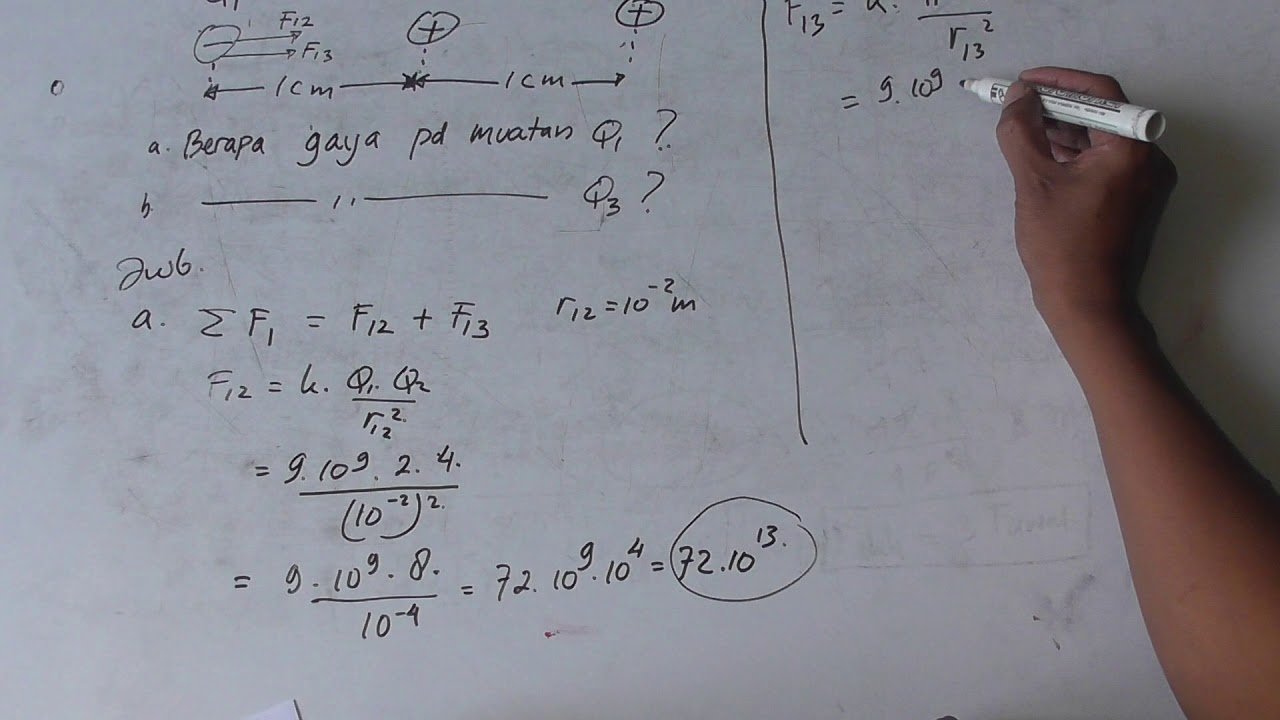 F12
F13
1cm 1cm
a. Berapa gaya pd muatan Q1 ?
b. ——— ,, ——— Q3 ?
Jwb.
a. Σ F1 = F12 + F13 r12 = 10⁻² m
F12 = k. Q1. Q2
r12².
= 9.10⁹. 2. 4.
(10⁻²)².
= 9.10⁹.8. = 72.10⁹.10⁴ = 72.10¹³.
10⁻⁴
F13 = k.
r13²
= 9.10⁹